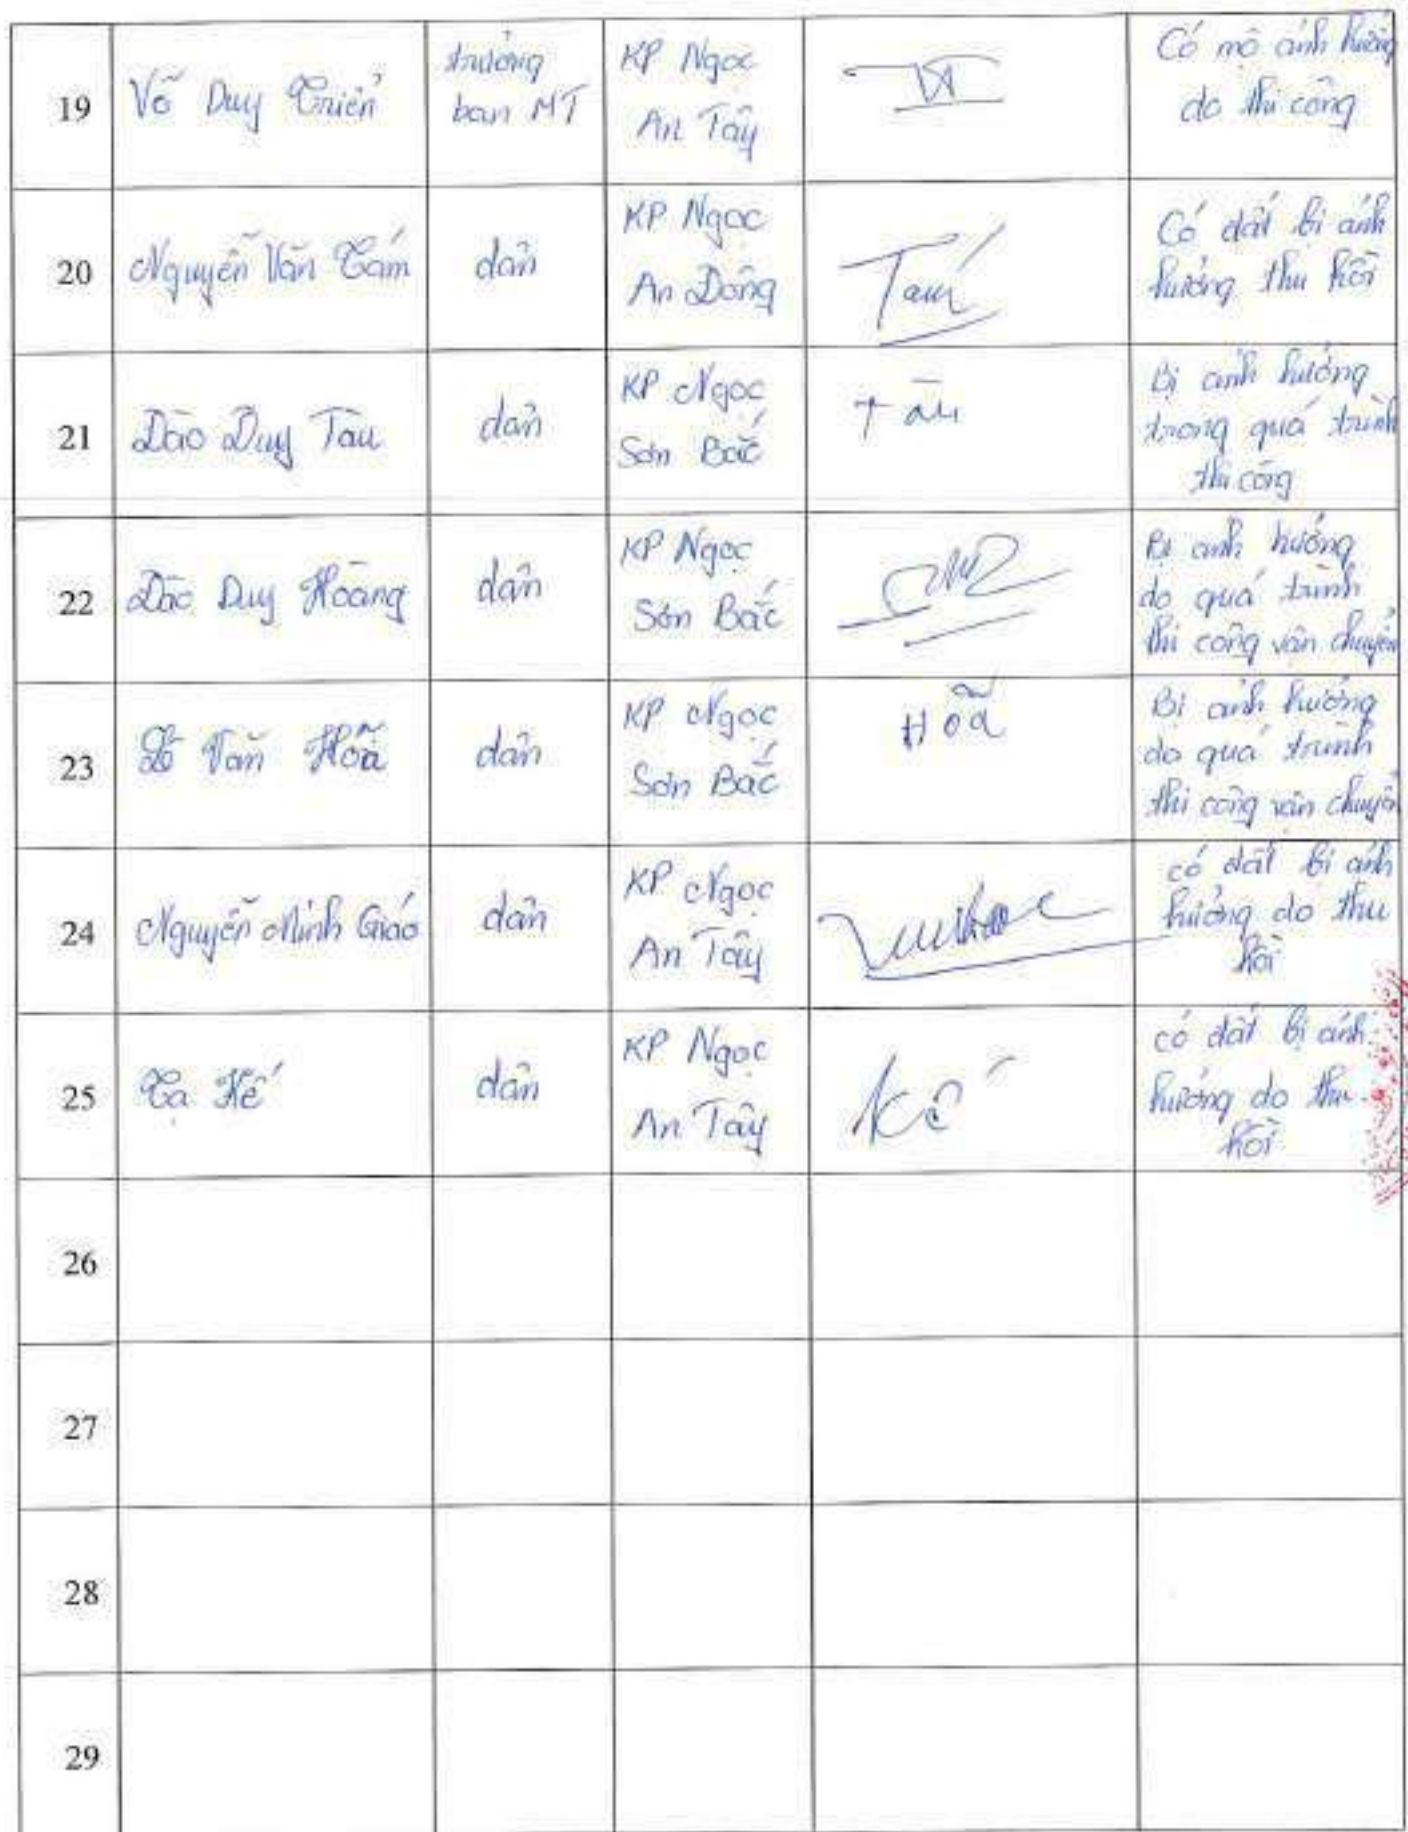 19
Võ Duy Triển
trưởng
ban MT
KP Ngọc
An Tây
Có mộ ảnh hưởng
do thi công
20
Nguyễn Văn Tám
dân
KP Ngọc
An Đông
Tám
Có đất bị ảnh
hưởng thu hồi
21
Đào Duy Tàu
dân
KP Ngọc
Sơn Bắc
Tàu
Bị ảnh hưởng
trong quá trình
thi công
22
Đào Duy Hoàng
dân
KP Ngọc
Sơn Bắc
Bị ảnh hưởng
do quá trình
thi công vận chuyển
23
Lê Văn Hoã
dân
KP Ngọc
Sơn Bắc
Hoã
Bị ảnh hưởng
do quá trình
thi công vận chuyển
24
Nguyễn Minh Giáo
dân
KP Ngọc
An Tây
có đất bị ảnh
hưởng do thu
hồi
25
Tạ Kế
dân
KP Ngọc
An Tây
Kế
có đất bị ảnh
hưởng do thu
hồi
26
27
28
29